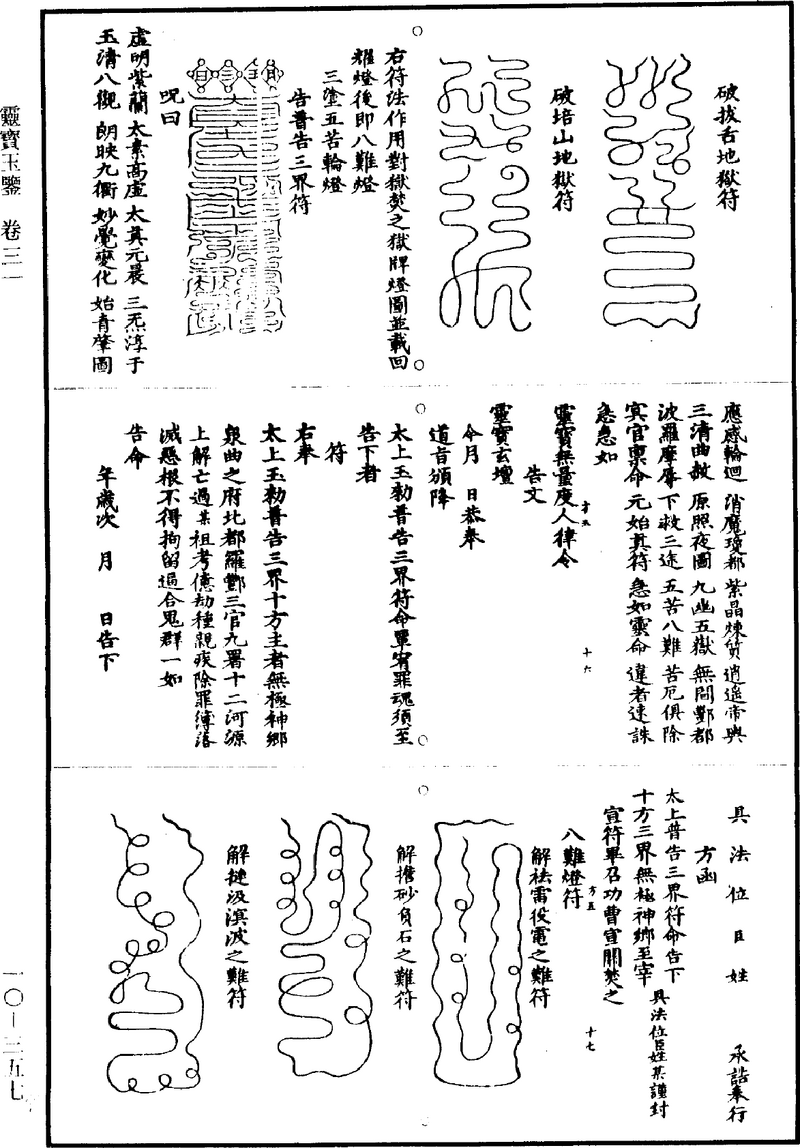 靈寶玉鑒　卷三一
一〇—三五七
破拔舌地獄符
破培山地獄符
右符法作用對獄焚之獄牌燈圖並載回
耀燈後即八難燈
三塗五苦輪燈
告普告三界符
呪曰
虛明紫蘭　太素高虛　太真元晨　三炁淳于
玉清八觀　朗映九衢　妙覺變化　始青肇圖
應感輪迴　消魔瓊都　紫晶煉質　逍遙帝輿
三清曲赦　原照夜圖　九幽五獄　無間酆都
波羅摩辱　下救三途　五苦八難　苦厄俱除
冥官禀命　元始真符　急如靈命　違者速誅
急急如
靈寶無量度人律令
方五　十六
告文
靈寶玄壇
今月　日恭奉
道旨頒降
太上玉勑普告三界符命單宥罪魂須至
告下者
符
右奉
太上玉勑普告三界十方主者無極神鄉
泉曲之府北都羅酆三官九署十二河源
上解亡過某祖考億劫種親疾除罪簿落
滅惡根不得拘留逼合鬼群一如
告命
年歲次　月　日告下
具法位臣姓　承誥奉行
方函
太上普告三界符命告下
十方三界無極神鄉至宰　具法位臣姓某謹封
宣符畢召功曹宣關焚之
方五　十七
八難燈符
解祛雷役電之難符
解擔砂負石之難符
解揵汲溟波之難符